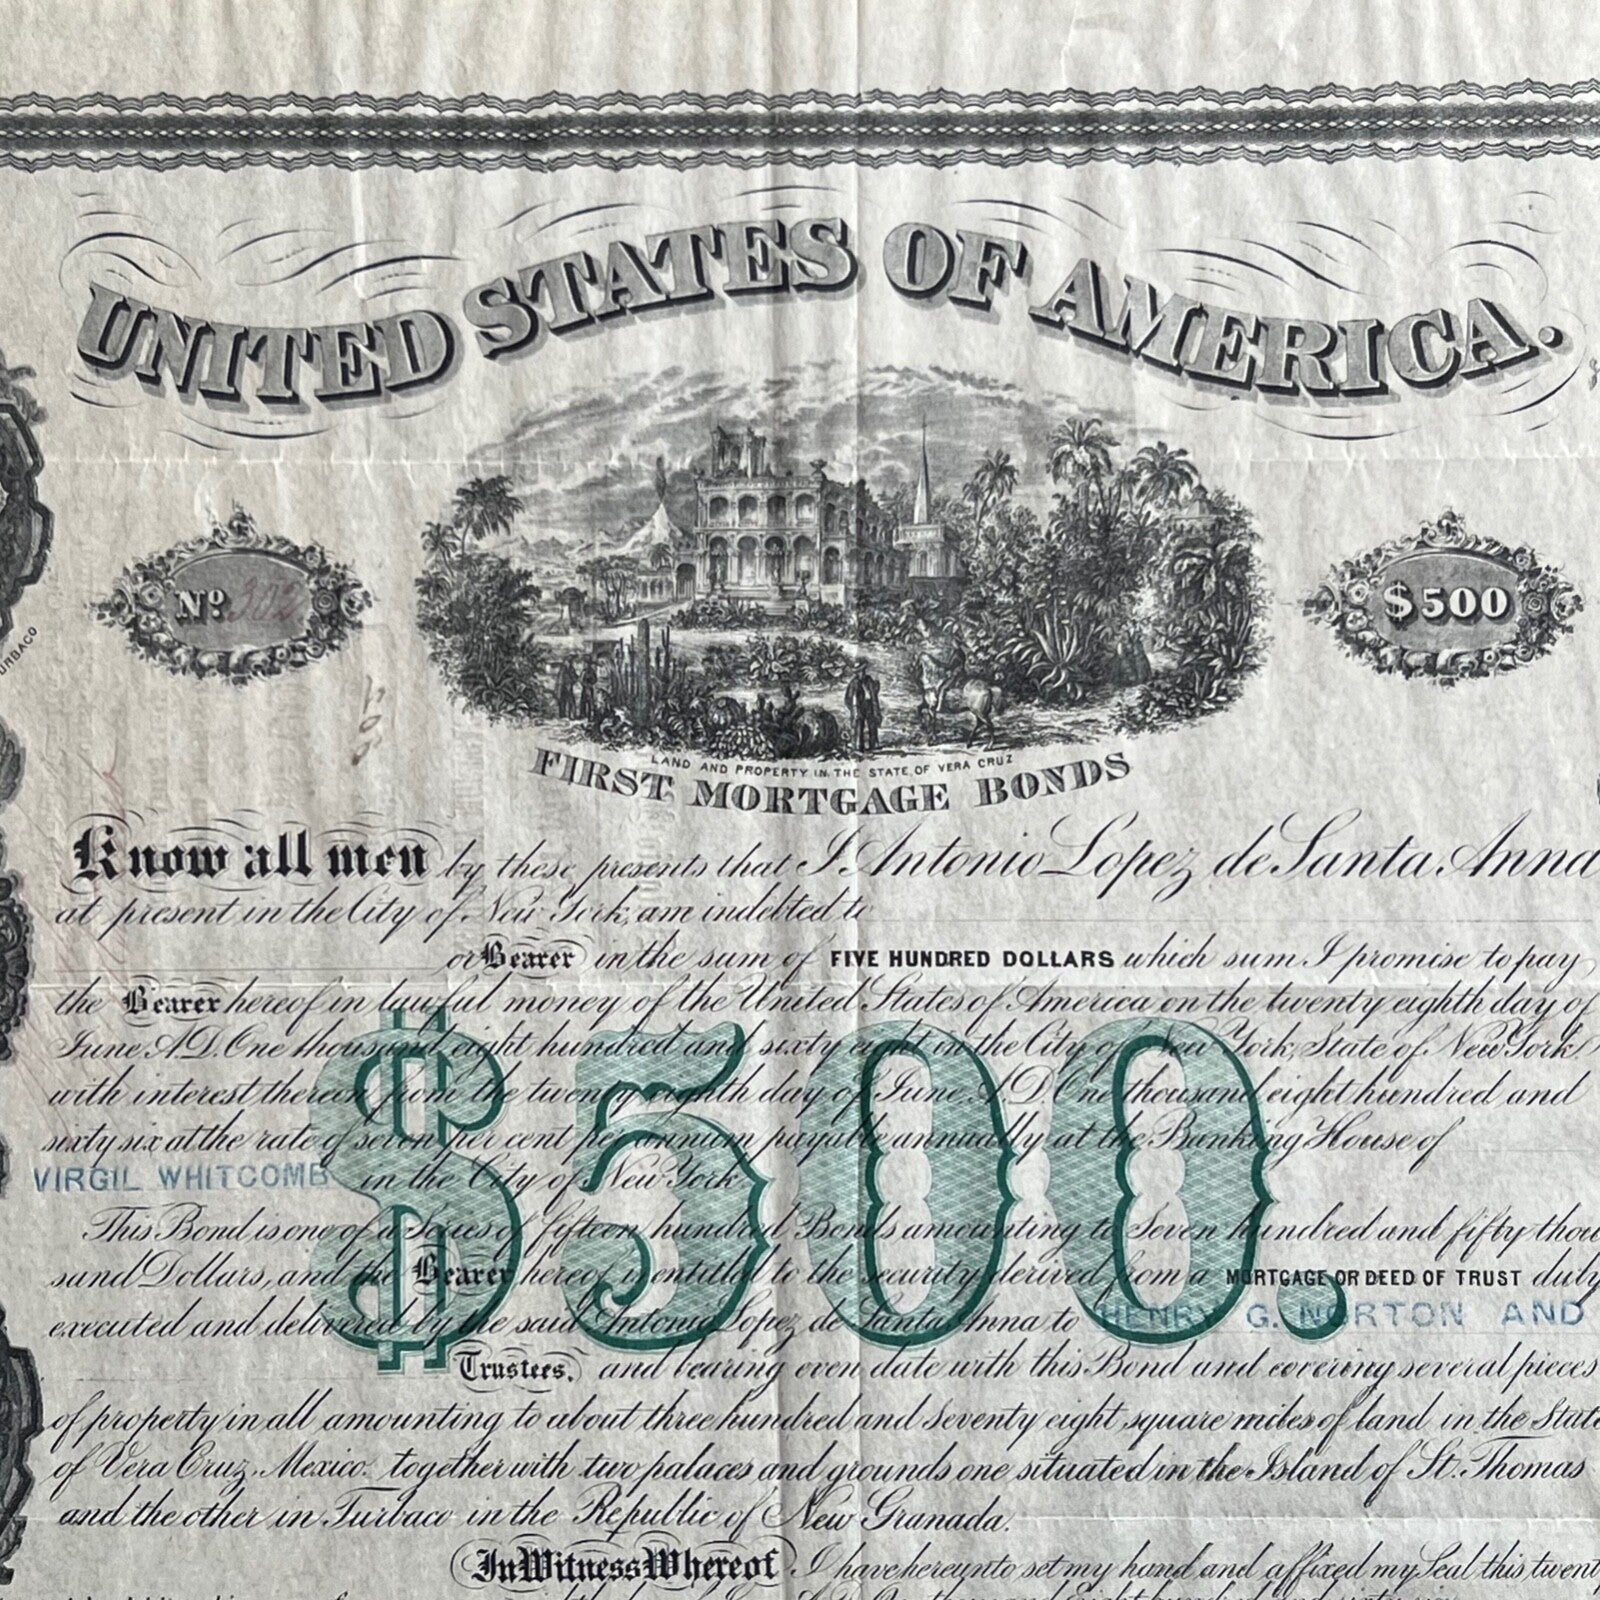 UNITED STATES OF AMERICA.
No. 302
$500
URBACO
LAND AND PROPERTY IN THE STATE OF VERA CRUZ
FIRST MORTGAGE BONDS
Know all men by these presents that I Antonio Lopez de Santa Anna
at present in the City of New York, am indebted to
or Bearer in the sum of FIVE HUNDRED DOLLARS which sum I promise to pay
the Bearer hereof in lawful money of the United States of America on the twenty eighth day of
June A.D. One thousand eight hundred and sixty eight in the City of New York, State of New York,
with interest thereon from the twenty eighth day of June A.D. One thousand eight hundred and
sixty six at the rate of seven per cent per annum payable annually at the Banking House of
VIRGIL WHITCOMB in the City of New York
$500.
This Bond is one of a Series of fifteen hundred Bonds amounting to Seven hundred and fifty thou
sand Dollars, and the Bearer hereof is entitled to the security derived from a MORTGAGE OR DEED OF TRUST duly
executed and delivered by the said Antonio Lopez de Santa Anna to HENRY G. NORTON AND
Trustees, and bearing even date with this Bond and covering several pieces
of property in all amounting to about three hundred and seventy eight square miles of land in the State
of Vera Cruz, Mexico. together with two palaces and grounds one situated in the Island of St. Thomas
and the other in Turbaco in the Republic of New Granada.
In Witness Whereof I have hereunto set my hand and affixed my Seal this twent